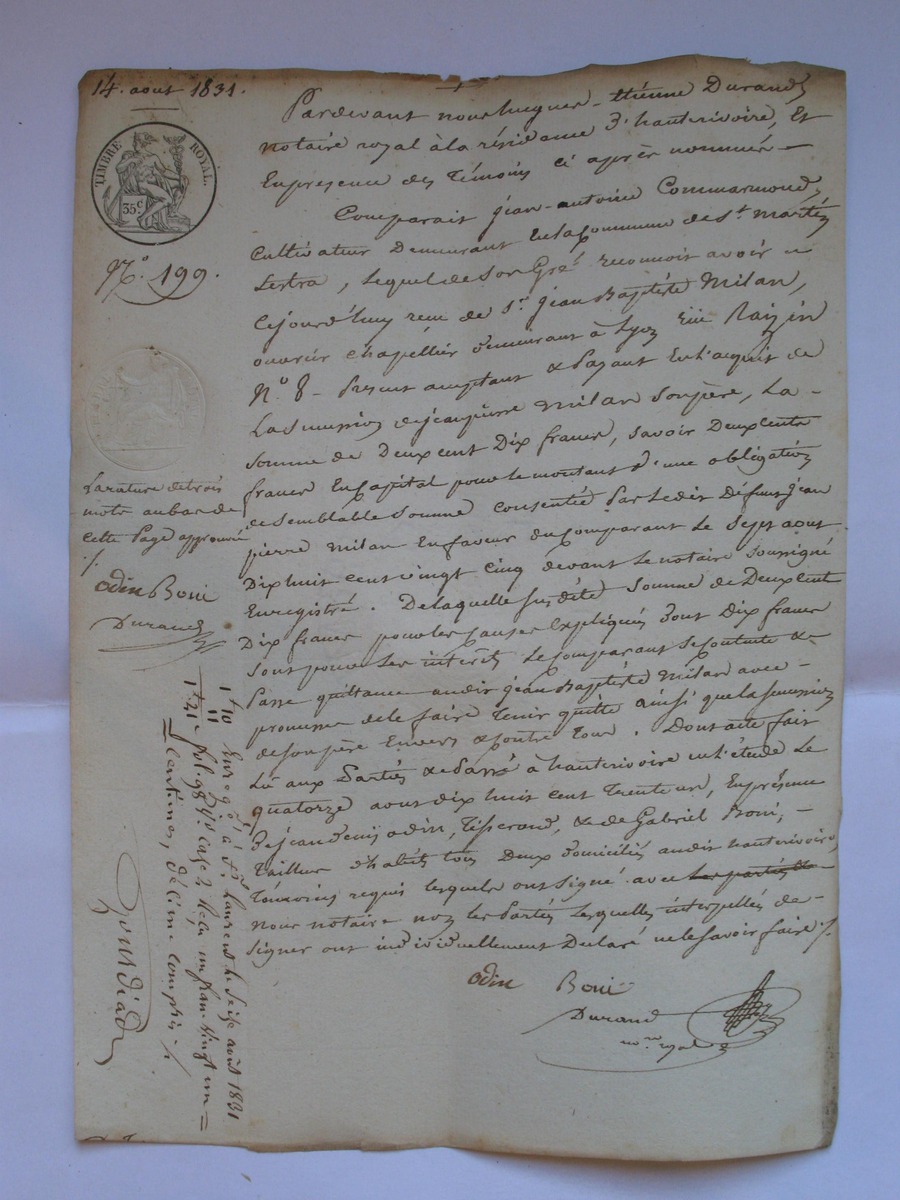 14. aout 1831.
TIMBRE ROYAL.
35c
N.° 199.
Pardevant nous hugues-Etienne Durand,
notaire royal à la résidance d'hauterivoire, Et
En presence des Temoins ci après nommés —
Comparait jean-antoine Commarmond,
Cultivateur Demeurant En la Commune de St. Martin
Lestra, Lequel de son Gré reconnoit avoir
cejourd'huy reçu de Sr. jean Baptiste Milan,
ouvrier chapellier demeurant à Lyon rüe Raizin
N.° 8 – Présent acceptant & Payant En l'acquit de
La Succession de jean pierre Milan son père, La –
Somme de Deux cent Dix francs, savoir Deux cents
francs En Capital pour le montant d'une obligation
de semblable somme consentie Par Ledit Défunt jean
pierre Milan En faveur du Comparant Le Sept aout
Dix huit cent vingt cinq devant Le notaire soussigné
Enregistré. De laquelle susdite somme de Deux cent
Dix francs pour les causes Expliqués dont Dix francs
sont pour les intérêts Le comparant se contente &
Passe quittance audit jean Baptiste Milan avec –
promesse de le faire Tenir quitte ainsi que la succession
de son père Envers & contre Tous. Dont acte fait
Lû aux Parties & Passé à hauterivoire en l'étude Le
quatorze aout dix huit cent Trente un, En présence
De jean denis odin, Tisserand, & de Gabriel Boni, –
Tailleur d'habits tous Deux domiciliés audit hauterivoire,
Témoins requis lesquels ont signé avec les parties &
nous notaire non les Parties Lesquelles interpellés de –
signer ont individuellement Déclaré ne le savoir faire ./.
odin Boni
Durand
no.re royal
La rature de trois
mots au bas de
cette Page approuvée
./.
odin Boni
Durand
1 f 10
11
1 f 21 c
Enregé. à St. Laurent le Seize aout 1831
fol. 98 Vo. case 2 Reçu un franc vingt un
centimes, décime compris ./.